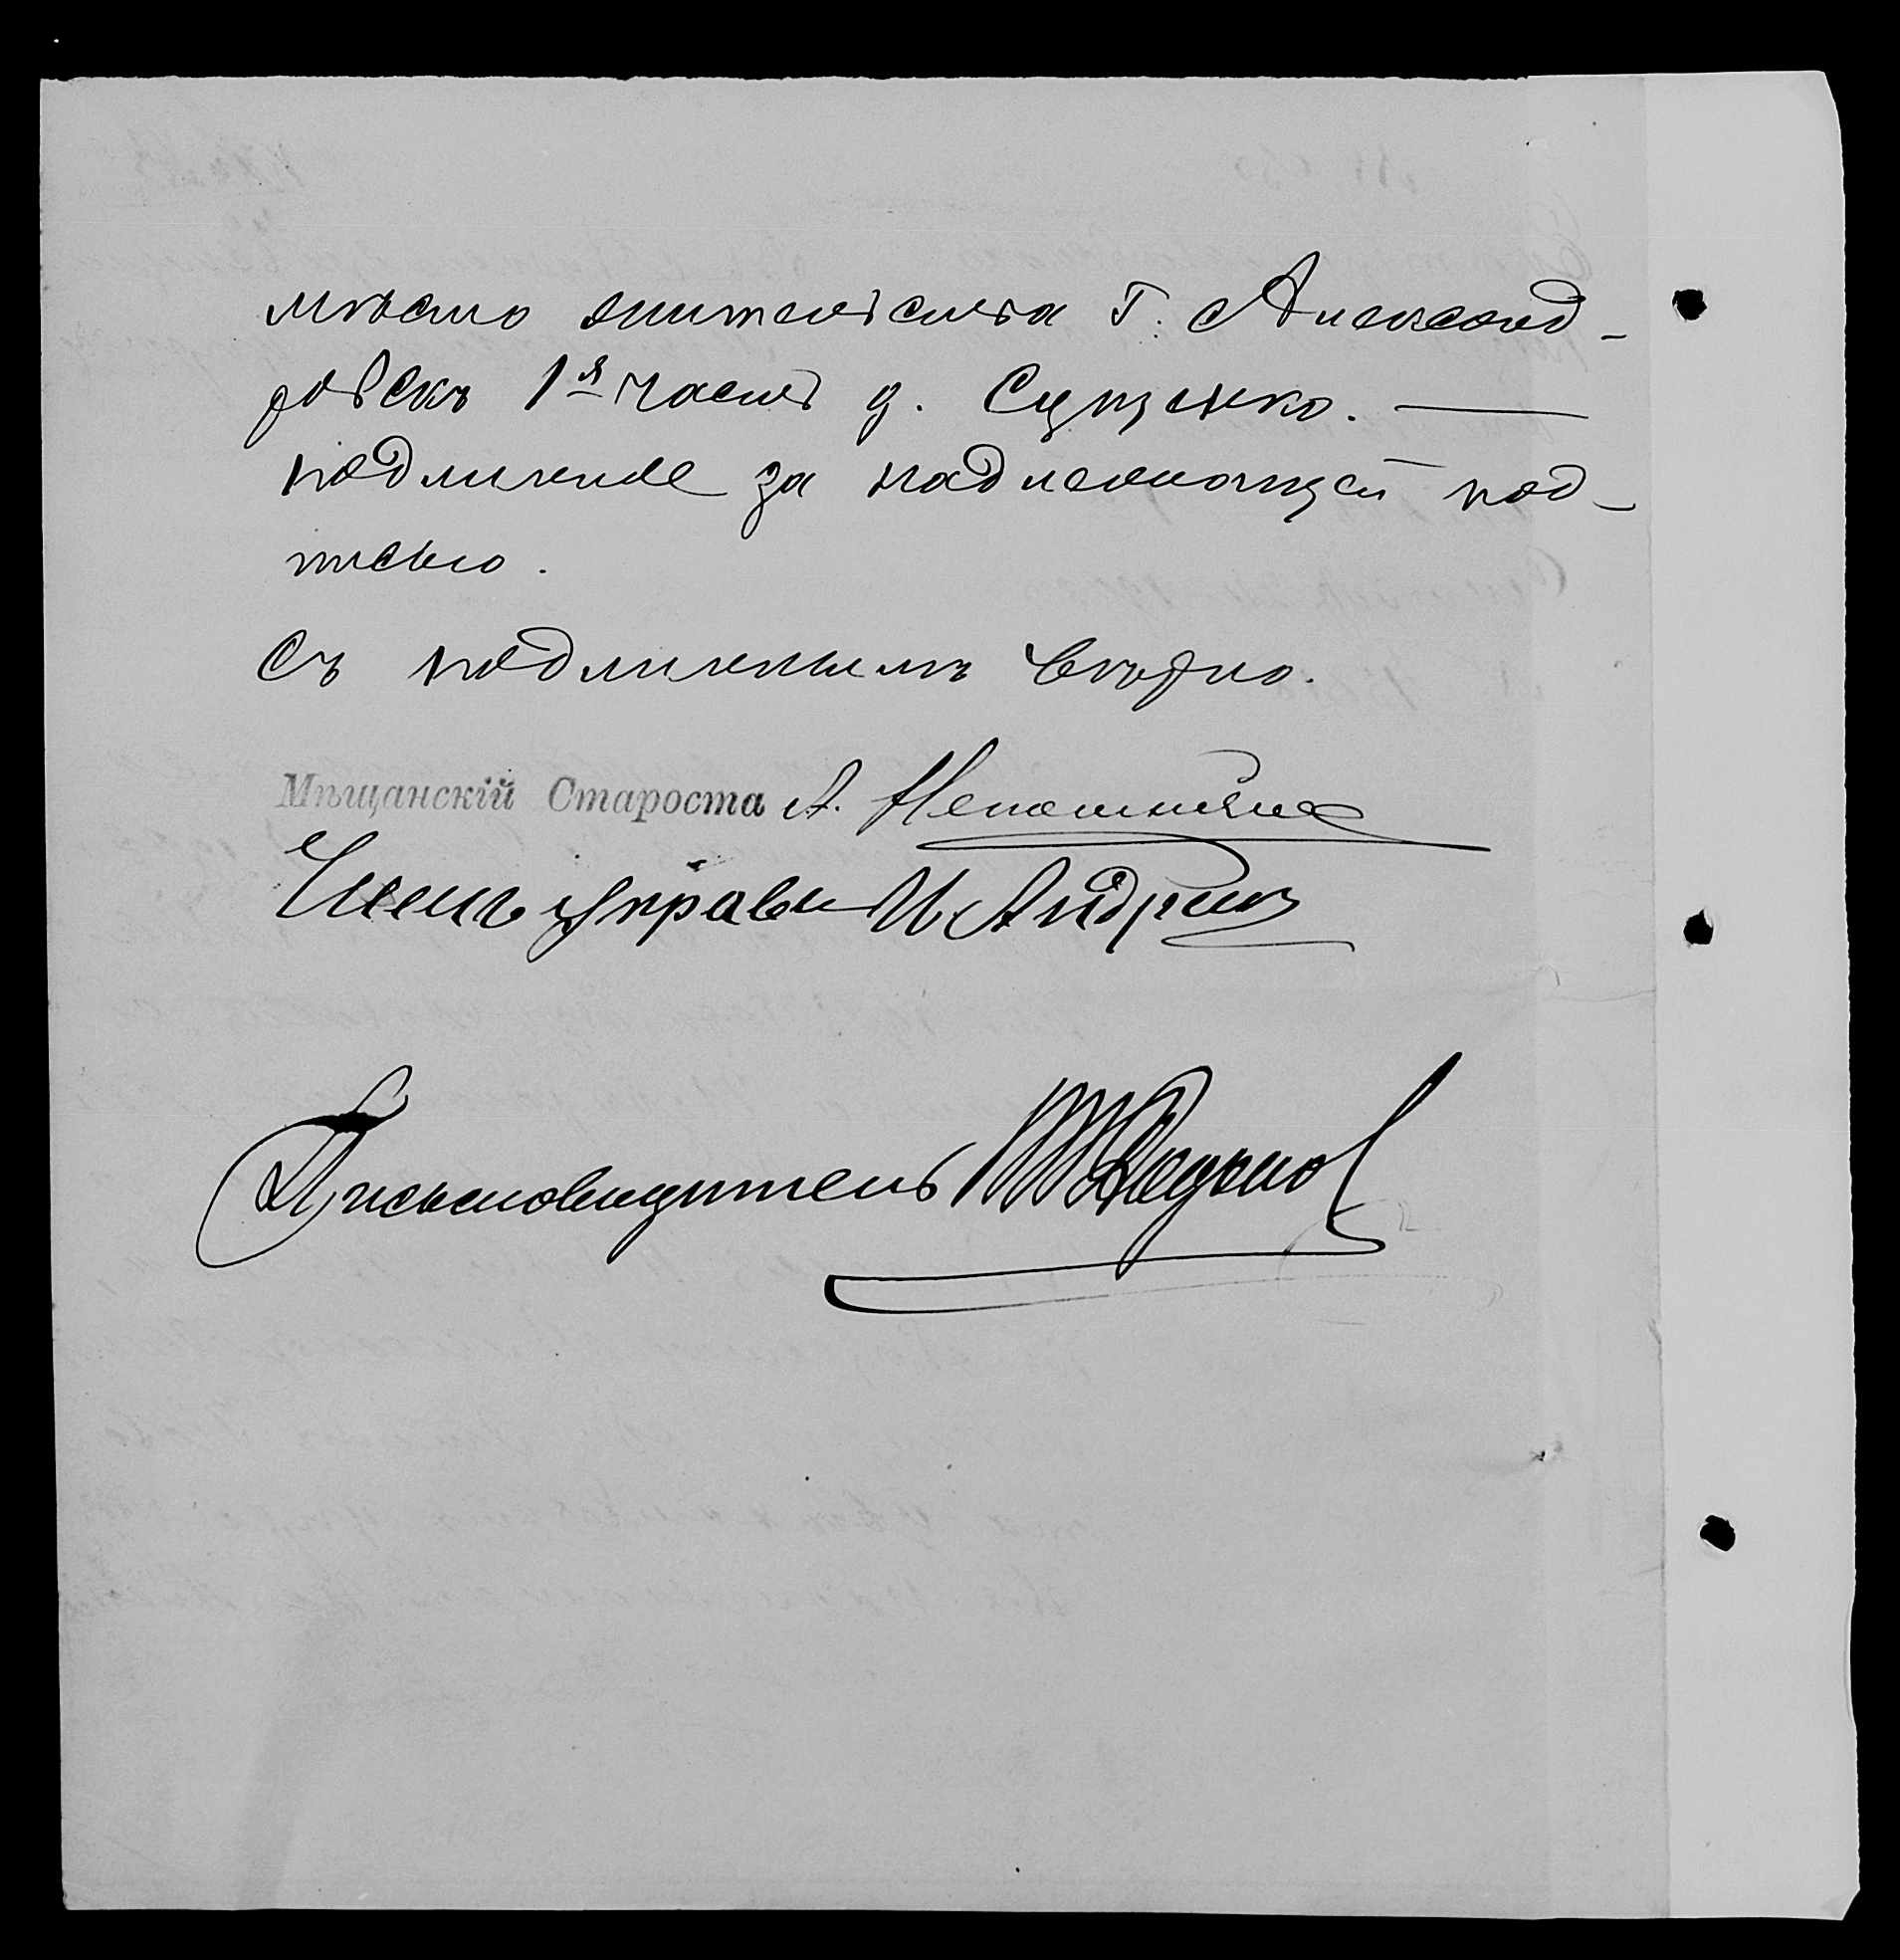 мѣсто жительства г. Александ-
ровскъ 1я часть д. Сущенко. —
подлинное за надлежащей под-
писью.
Съ подлиннымъ вѣрно.
Мѣщанскій Староста А.
Членъ управы И. Андре
Письмоводитель